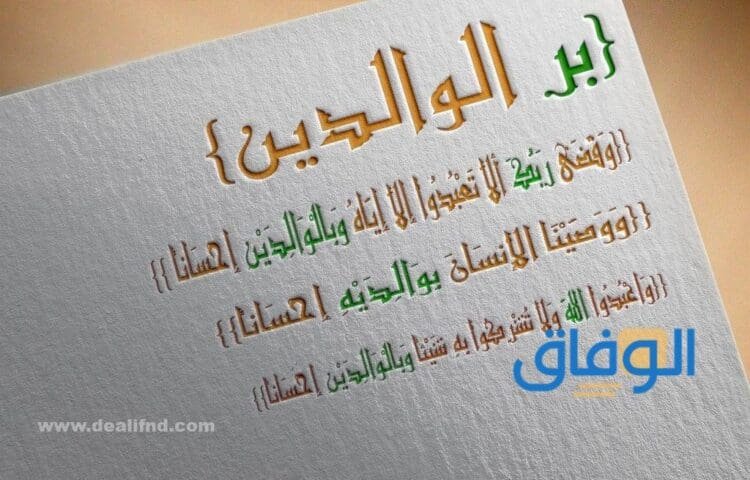 {بر الوالدين}
{{وَقَضَى رَبُّكَ أَلاَّ تَعْبُدُوا إِلاَّ إِيَّاهُ وَبِالْوَالِدَيْنِ إِحْسَانًا}}
{{وَوَصَّيْنَا الإِنسَانَ بِوَالِدَيْهِ إِحْسَانًا}}
{{وَاعْبُدُوا اللَّهَ وَلَا تُشْرِكُوا بِهِ شَيْئًا وَبِالْوَالِدَيْنِ إِحْسَانًا}}
الوفاق
www.dealifnd.com